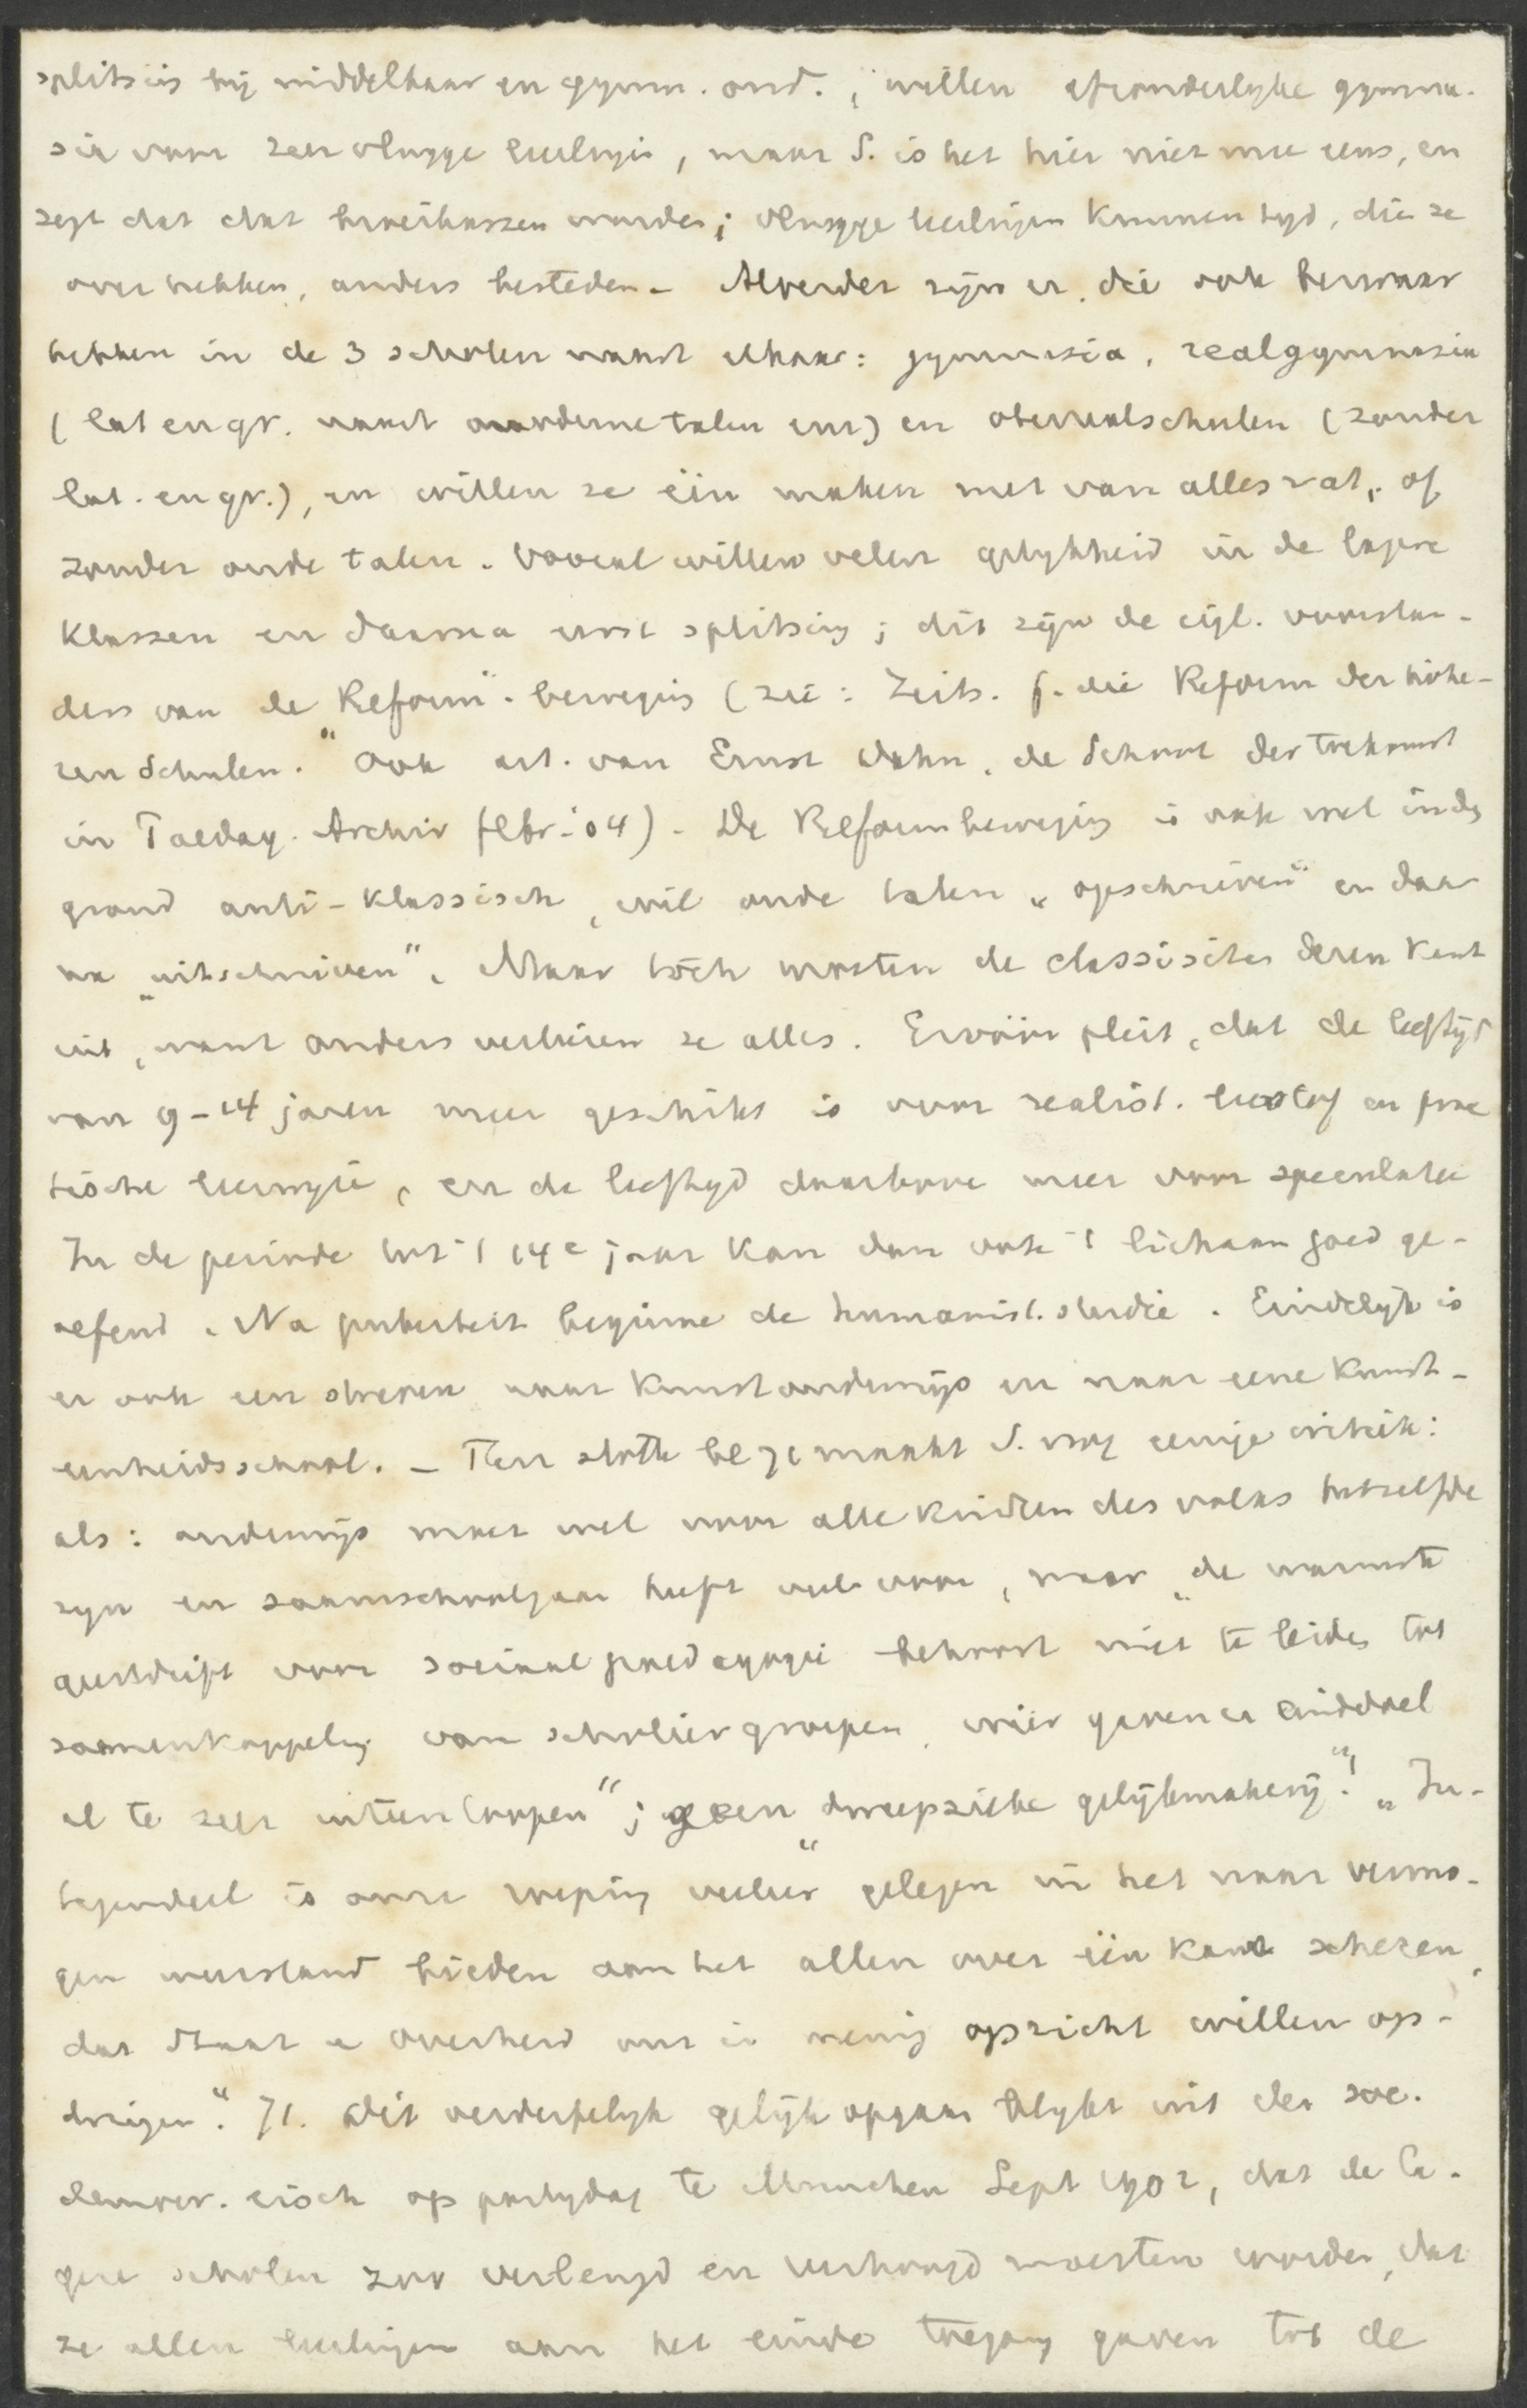 splitsing bij middelbaar en gymn. ond., willen afzonderlijke gymna-
sia voor zeer vlugge leerlingen, maar S. is het hier niet mee eens, en
zegt dat dat broeikassen worden; vlugge leerlingen kunnen tyd, die ze
over hebben, anders besteden. – Alverder zijn er, die ook bezwaar
hebben in de 3 scholen naast elkaar: gymnasia, realgymnasia
(lat en gr. naast moderne talen enz) en oberrealschulen (zonder
lat. en gr.), en willen ze één maken met van alles wat, of
zonder oude talen. Vooral willen velen gelykheid in de lagere
klassen en daarna eerst splitsing; dit zijn de eigl. voorstan-
ders van de "Reform"-beweging (zie: Zeits. f. die Reform der höhe-
ren Schulen." Ook art. van Ernst Dahn, de School der toekomst
in Paedag. Archiv febr. '04). De Reformbeweging is ook wel in de
grond anti-klassisch, wil oude talen „opschuiven" en daar
na „uitschuiven". Maar tòch moeten de classisten deren kant
uit, want anders verliezen ze alles. pleit, dat de leeftijd
van 9–14 jaren meer geschikt is voor realist. leerstof en prac
tische leerwyze, en de leeftyd daarboven meer voor speculatie
In de periode tot 't 14e jaar kan dan ook 't lichaam goed ge-
oefend. Na puberteit beginne de humanist. studie. Eindelijk is
er ook een streven naar kunstonderwijs en naar eene kunst-
eenheidsschool. – Ten slotte blz 70 maakt S. nog eenige critiek:
als: onderwijs moet wel voor alle kinderen des volks hetzelfde
zyn en saamschooljaar heeft veel voor, maar „de warmste
geestdrift voor sociaal paedagogie behoort niet te leiden tot
saamenkoppeling van scholiergroepen, wier gaven en einddoel
al te zeer uiteenloopen"; geen dweepzieke gelijkmakery"! „In-
tegendeel is onze roeping veeleer" gelegen in het naar vermo-
gen weerstand bieden aan het allen over één kam scheren,
dat Staat en Overheid ons in menig opzicht willen op-
dringen." 71. Dit verderfelyk gelijk opgaan blykt uit den soc.
democr. eisch op partydag te Munchen Sept 1902, dat de la-
gere scholen zoo verlengd en verhoogd moesten worden, dat
ze allen leerlingen aan het einde toegang gaven tot de